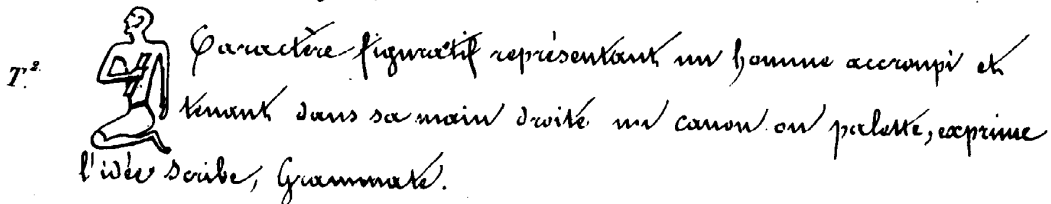 T.² Caractère figuratif représentant un homme accroupi et
tenant dans sa main droite un canon ou palette, exprime
l'idée scribe, Grammate.